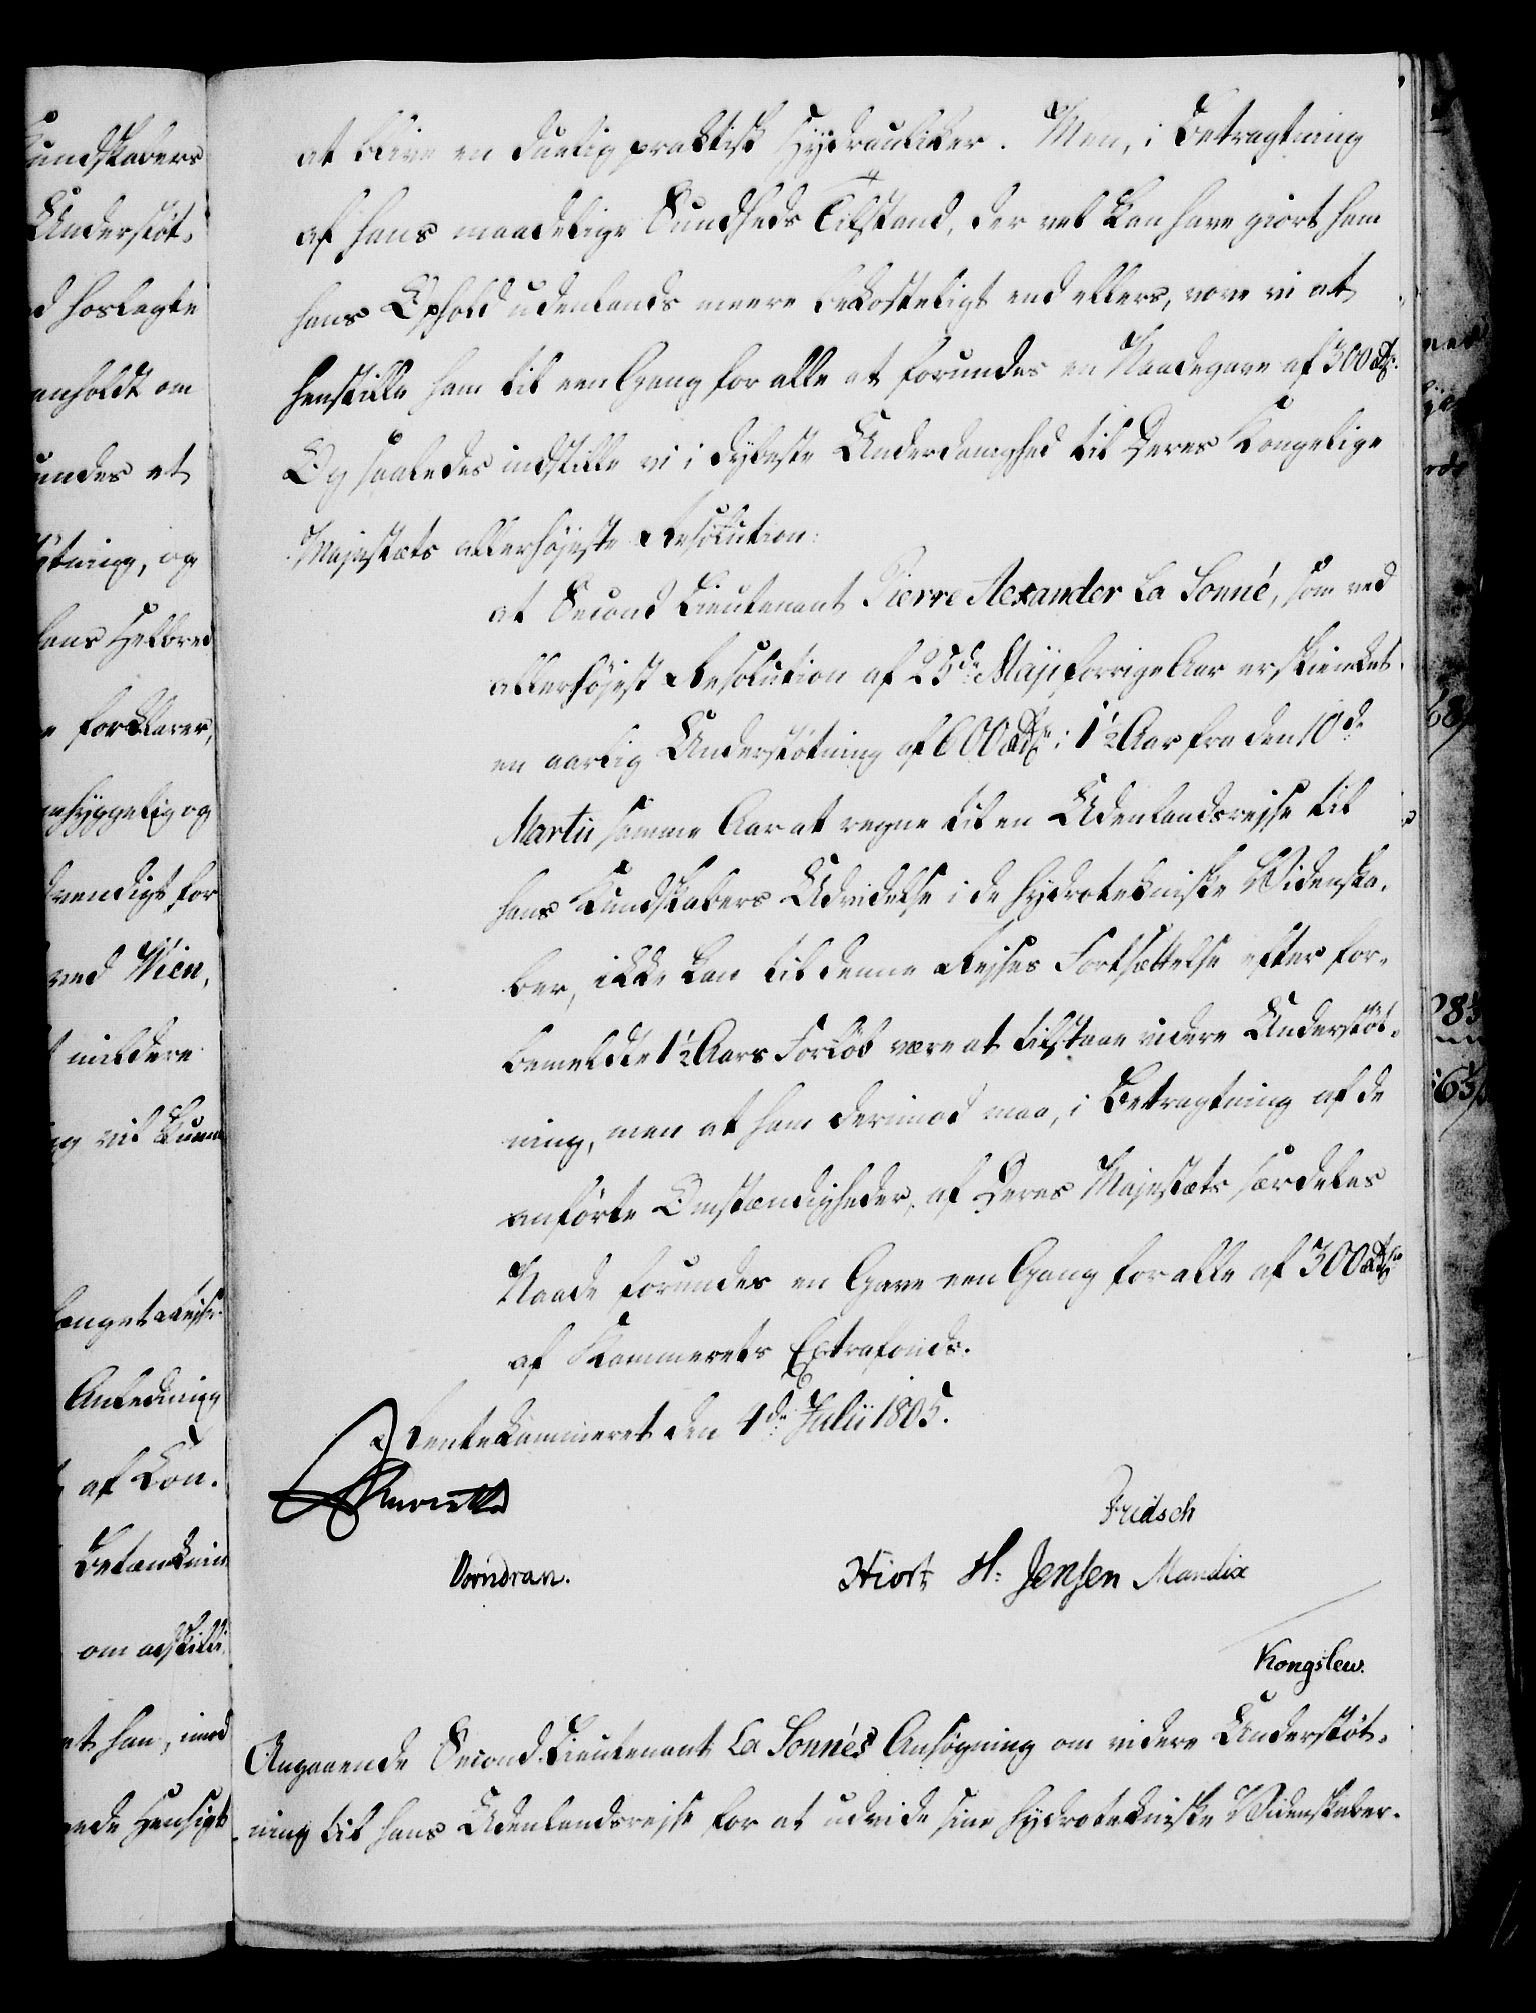 at blive en duelig praktisk Hydrauliker. Men, i Betragtning
af hans maadelige Sundheds Tilstand, der vel kan have giort ham
hans Ophold udenlands meere bekosteligt end ellers, vove vi at
henstille ham til een Gang for alle at forundes en Naadegave af 300 Rdr.
Og saaledes indstille vi i dybeste Underdanighed til Deres Kongelige
Majestæts allerhöjeste Resolution:
at Second Lieutenant Pierre Alexander la Sonné, som ved
allerhöjest Resolution af 25de Maji forrige Aar er skienket
en aarlig Understötning af 600 Rdr i 1½ Aar fra den 10de
Martii samme Aar at regne til en Udenlandsrejse til
hans Kundskabers Udvidelse i de hydrotekniske Videnska-
ber, ikke kan til denne Rejses Fortsættelse efter for-
bemeldte 1½ Aars Forlöb være at tilstaae videre Understöt-
ning, men at ham derimod maa, i Betragtning af de
anförte Omstændigheder, af Deres Majestæts særdeles
Naade forundes en Gave een Gang for alle af 300 Rdr
af Kammerets Extrafonds.
Rentekammeret den 4de Julii 1805.
Reventlow
Fridsch
Vorndran. Hiort H. Jensen Mandix
Kongslew.
Angaaende Second-Lieutenant la Sonnés Ansögning om videre Understöt-
ning til hans Udenlandsrejse for at udvide sine hydrotekniske Videnskaber.
Kundskabers
Understöt-
hoslagte
anholdt om
et
og
hans Helbred
forklarer,
og
for
ved Wien,
mildere
vil kunne
Anledning
af Kon-
Betænkning
om
at han, imod
Hensigt